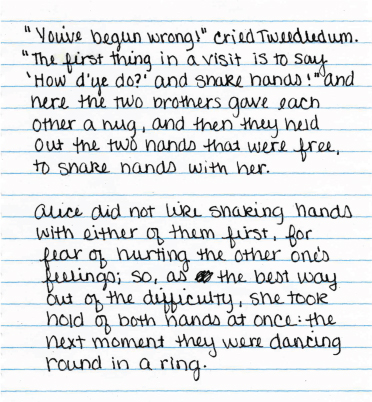 "You've begun wrong!" cried Tweedledum.
"The first thing in a visit is to say
'How d'ye do?' and shake hands!" and
here the two brothers gave each
other a hug, and then they held
out the two hands that were free,
to shake hands with her.
Alice did not like shaking hands
with either of them first, for
fear of hurting the other one's
feelings; so, as the best way
out of the difficulty, she took
hold of both hands at once: the
next moment they were dancing
round in a ring.